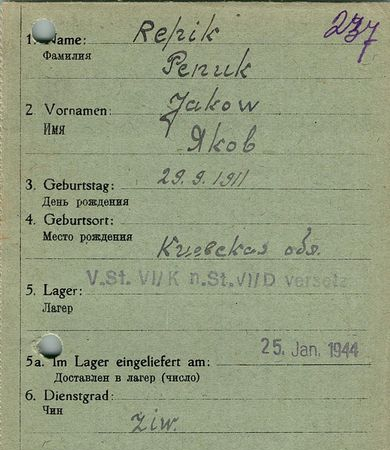 237
1. Name: Repik
Фамилия
Репик
2 Vornamen: Jakow
Имя
Яков
3. Geburtstag: 29.9.1911
День рождения
4. Geburtsort:
Место рождения
Киевская обл.
V.St. VI/K n.St.VI/D versetz
5. Lager:
Лагер
25. Jan. 1944
5a. Im Lager eingeliefert am:
Доставлен в лагер (число)
6. Dienstgrad:
Чин
ziw.